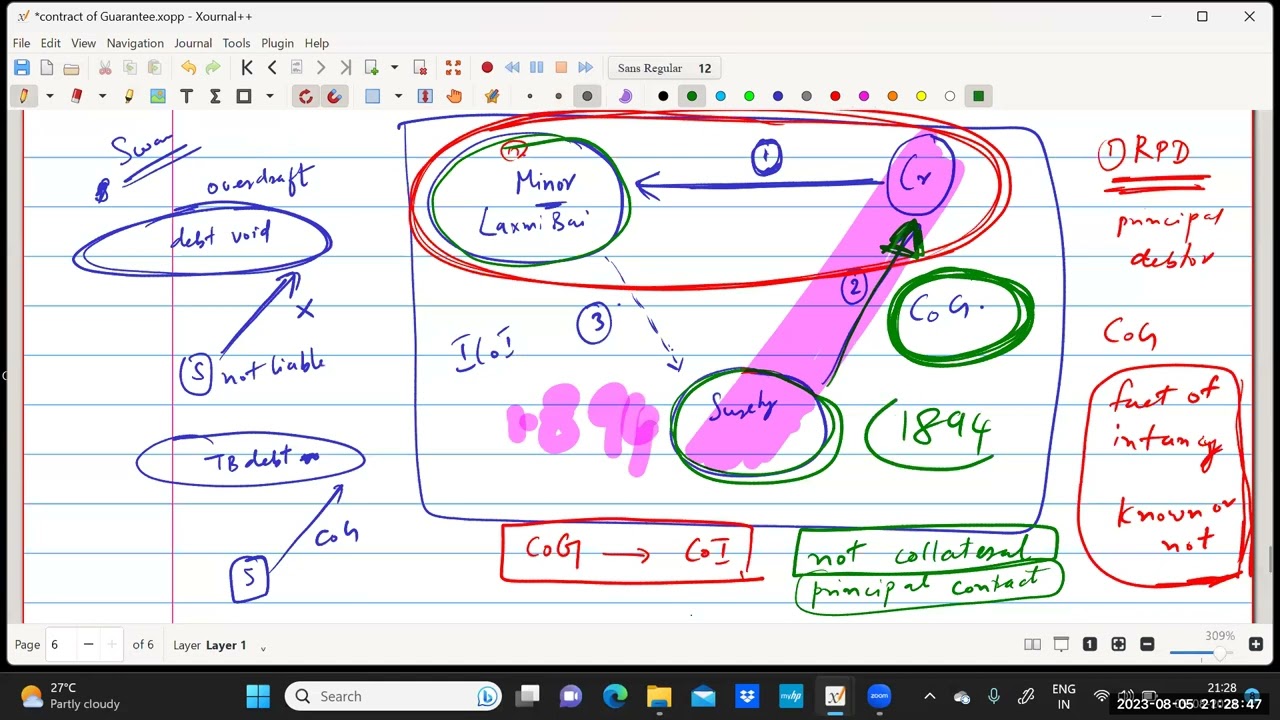 *contract of Guarantee.xopp - Xournal++
File Edit View Navigation Journal Tools Plugin Help
Sans Regular 12
Swan
overdraft
debt void
X
S not liable
TB debt
CoG
S
n
Minor
Laxmi Bai
1
Cr
2
3
CoG.
ICoI
1894
Surety
1894
CoG → CoI
not collateral
principal contact
1) RPD
principal
debtor
CoG
fact of
infancy
known or
not
Page 6 of 6 Layer Layer 1
309%
27°C
Partly cloudy
Search
myhp
zoom
ENG
IN
21:28
2023-08-05 21:28:47